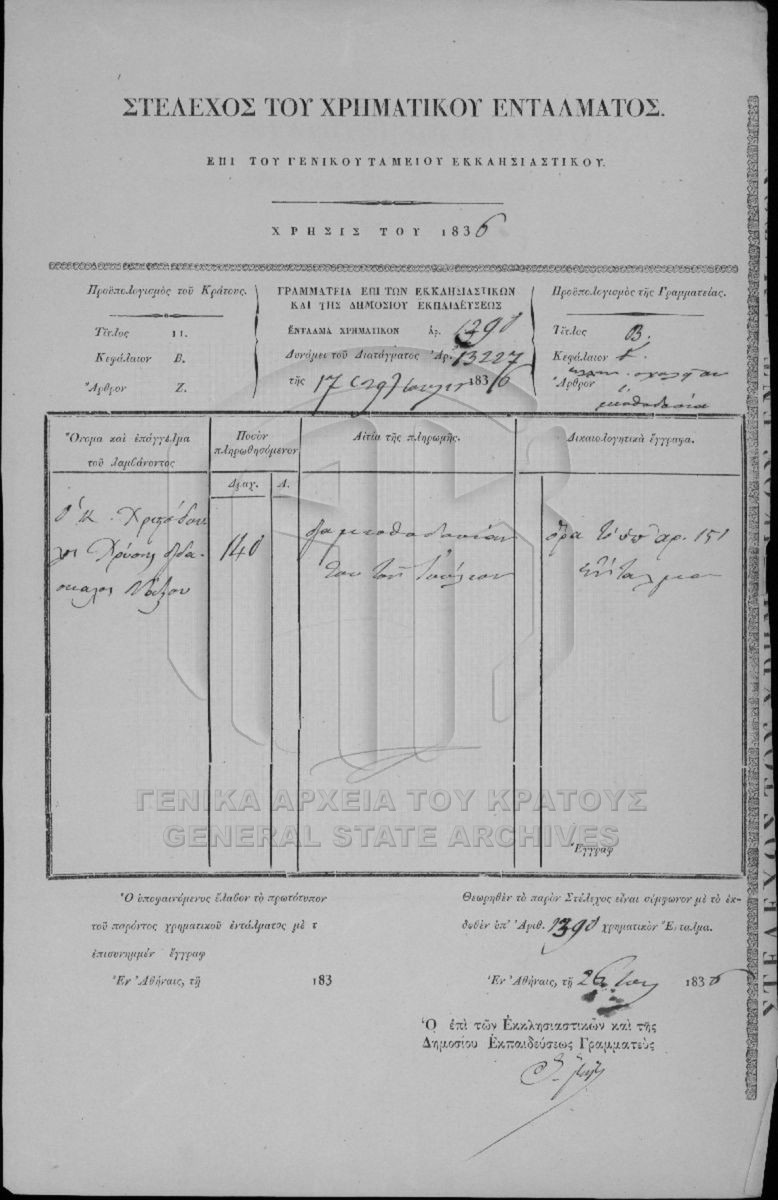 ΣΤΕΛΕΧΟΣ ΤΟΥ ΧΡΗΜΑΤΙΚΟΥ ΕΝΤΑΛΜΑΤΟΣ.
ΕΠΙ ΤΟΥ ΓΕΝΙΚΟΥ ΤΑΜΕΙΟΥ ΕΚΚΛΗΣΙΑΣΤΙΚΟΥ.
ΧΡΗΣΙΣ ΤΟΥ 1836
Προϋπολογισμὸς τοῦ Κράτους.
Τίτλος 11.
Κεφάλαιον Β.
Ἄρθρον Ζ.
ΓΡΑΜΜΑΤΕΙΑ ΕΠΙ ΤΩΝ ΕΚΚΛΗΣΙΑΣΤΙΚΩΝ
ΚΑΙ ΤΗΣ ΔΗΜΟΣΙΟΥ ΕΚΠΑΙΔΕΥΣΕΩΣ
ΕΝΤΑΛΜΑ ΧΡΗΜΑΤΙΚΟΝ Ἀρ. 1390
Δυνάμει τοῦ Διατάγματος Ἀρ. 13227
τῆς 17 (29) Ἰουλίου 1836
Προϋπολογισμὸς τῆς Γραμματείας.
Τίτλος Β.
Κεφάλαιον
Ἄρθρον
μισθοδοσία
Ὄνομα καὶ ἐπάγγελμα
τοῦ λαμβάνοντος
Ποσὸν
πληρωθησόμενον
Δραχ. Λ.
Αἰτία τῆς πληρωμῆς.
Δικαιολογητικὰ ἔγγραφα.
ὁ Κ. Χριστόδου
λος διδά-
σκαλος Νάξου
140
διὰ μισθοδοσίαν
του τοῦ Ἰουλίου
ὅρα τὸ ὑπ' ἀρ. 151
ἔνταλμα
Ἔγγραφ
ΓΕΝΙΚΑ ΑΡΧΕΙΑ ΤΟΥ ΚΡΑΤΟΥΣ
GENERAL STATE ARCHIVES
Ὁ ὑποφαινόμενος ἔλαβον τὸ πρωτότυπον
τοῦ παρόντος χρηματικοῦ ἐντάλματος μὲ τ
ἐπισυνημμέν ἔγγραφ
Ἐν Ἀθήναις, τῇ 183
Θεωρηθὲν τὸ παρὸν Στέλεχος εἶναι σύμφωνον μὲ τὸ ἐκ-
δοθὲν ὑπ' Ἀριθ. 1390 χρηματικὸν Ἔνταλμα.
Ἐν Ἀθήναις, τῇ 26 1836
Ὁ ἐπὶ τῶν Ἐκκλησιαστικῶν καὶ τῆς
Δημοσίου Ἐκπαιδεύσεως Γραμματεὺς